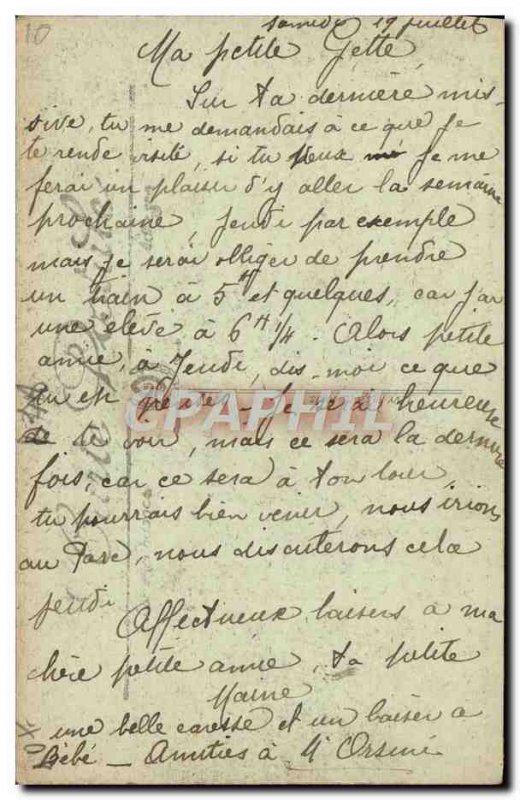 10
Samedi 19 juillet
Ma petite Gette
Sur ta dernière mis-
sive, tu me demandais à ce que je
te rende visite, si tu peux je me
ferai un plaisir d'y aller la semaine
prochaine, jeudi par exemple
mais je serai obliger de prendre
un train à 5H et quelques, car j'ai
une élève à 6H 1/4. Alors petite
amie, à Jeudi, dis-moi ce que
tu en penses - Je serai heureuse
de te voir, mais ce sera la dernière
fois, car ce sera à ton tour,
tu pourrais bien venir, nous irions
au Parc, nous discuterons cela
jeudi
Affectueux baisers à ma
chère petite amie, ta petite
une belle caresse et un baiser a
Bébé - Amitiés à
CPARPHIL
Carte Postale